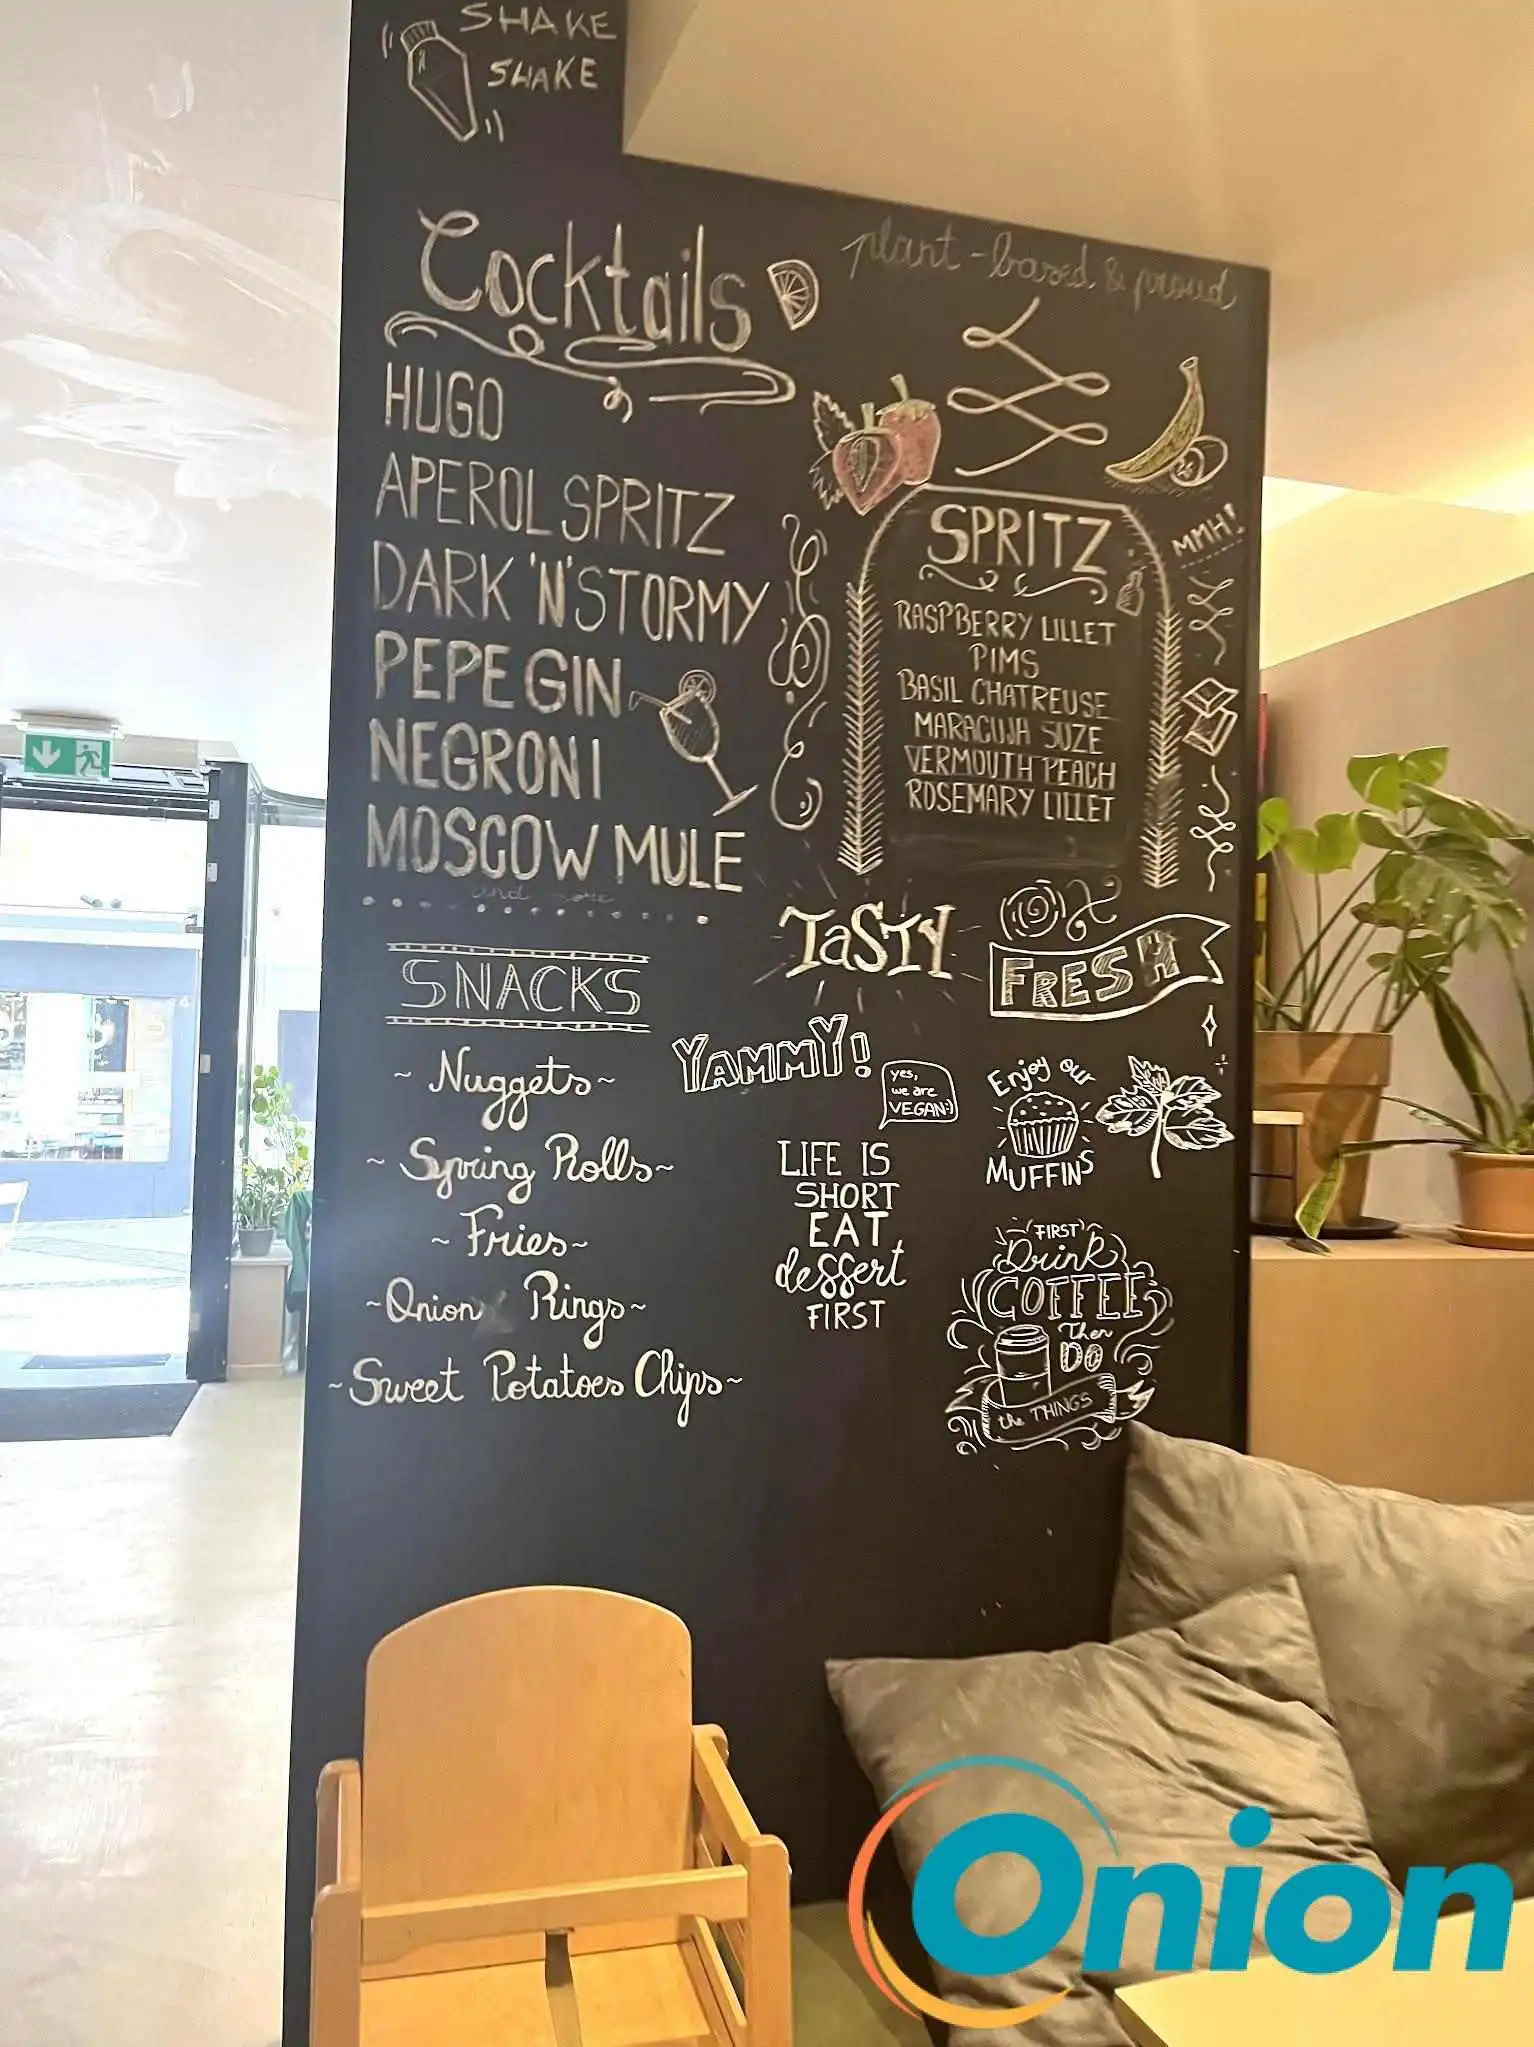 SHAKE
SHAKE
Cocktails
HUGO
APEROL SPRITZ
DARK 'N' STORMY
PEPE GIN
NEGRONI
MOSCOW MULE
and more
plant-based & proud
MMH!
SPRITZ
RASPBERRY LILLET
PIMS
BASIL CHATREUSE
MARACUJA SUZE
VERMOUTH PEACH
ROSEMARY LILLET
TaSTY
FRESH
SNACKS
~ Nuggets ~
~ Spring Rolls ~
~ Fries ~
~ Onion Rings ~
~ Sweet Potatoes Chips ~
YAMMY!
yes,
we are
VEGAN:)
Enjoy our
MUFFINS
LIFE IS
SHORT
EAT
dessert
FIRST
FIRST
Drink
COFFEE
Then
DO
the THINGS
Onion